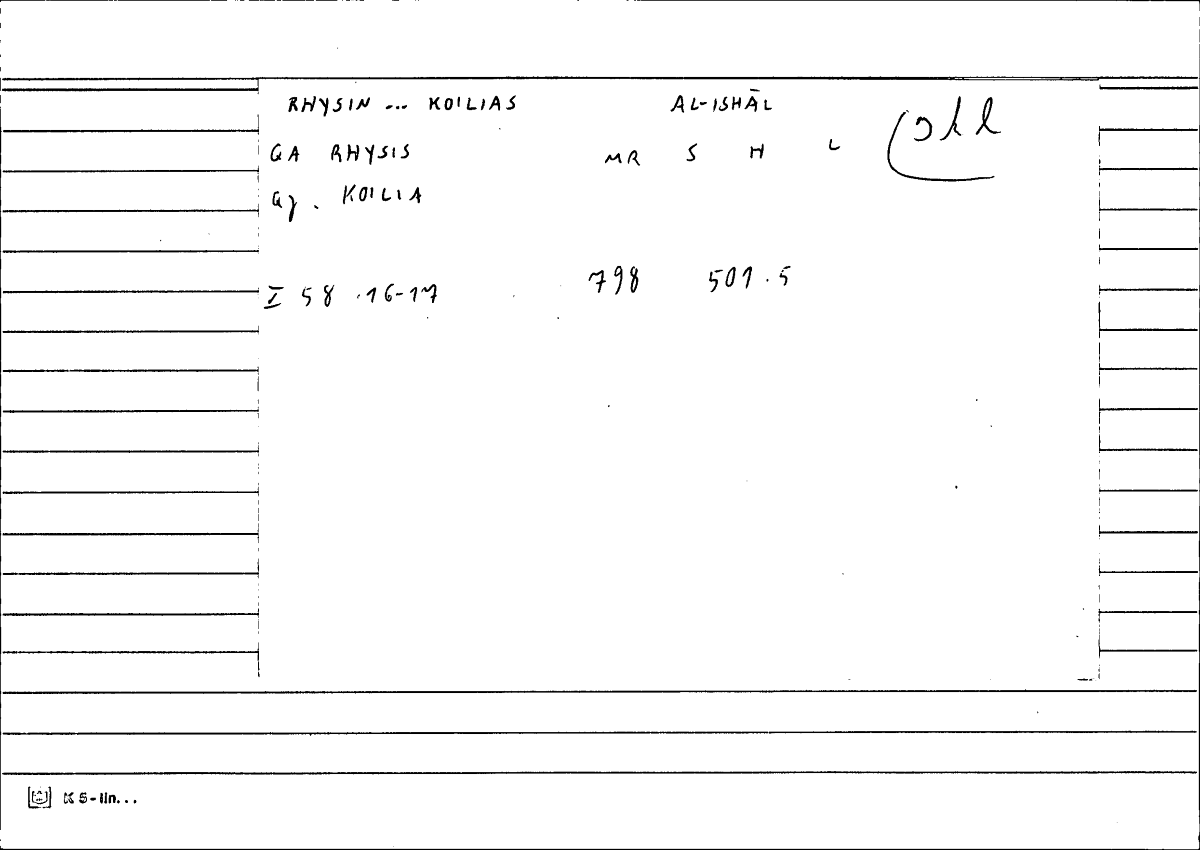 RHYSIN ... KOILIAS AL-ISHĀL
GA RHYSIS MR S H L shl
Gg . KOILIA
I 58 .16-17 798 501.5
K 5-lin...